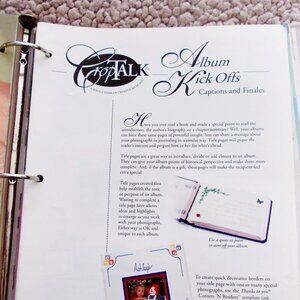 CropTALK
Album
Kick Offs
Captions and Finales
Have you ever read a book and made a special point to read the
introduction, the author's biography, or a chapter summary? Well, your albums
can have these same pages of powerful insight. You can share a message about
your photographs or journaling in a similar way. Title pages will pique the
reader's interest and prepare him or her for what's ahead.
Title pages are a great way to introduce, divide or add closure to an album.
They can give your album points of historical perspective and make them more
complete. And, if the album is a gift, these pages will make the recipient feel
extra special.
Title pages created first
help establish the tone
or purpose of an album.
Waiting to complete a
title page later allows
ideas and highlights
to emerge as you work
with your photographs.
Either way is OK and
unique to each album.
Use a quote or poem
to start off your album.
To create quick decorative borders on
your title page with one or many special
photographs, use the Thanks to you!
Corners 'N Borders™ template (ask